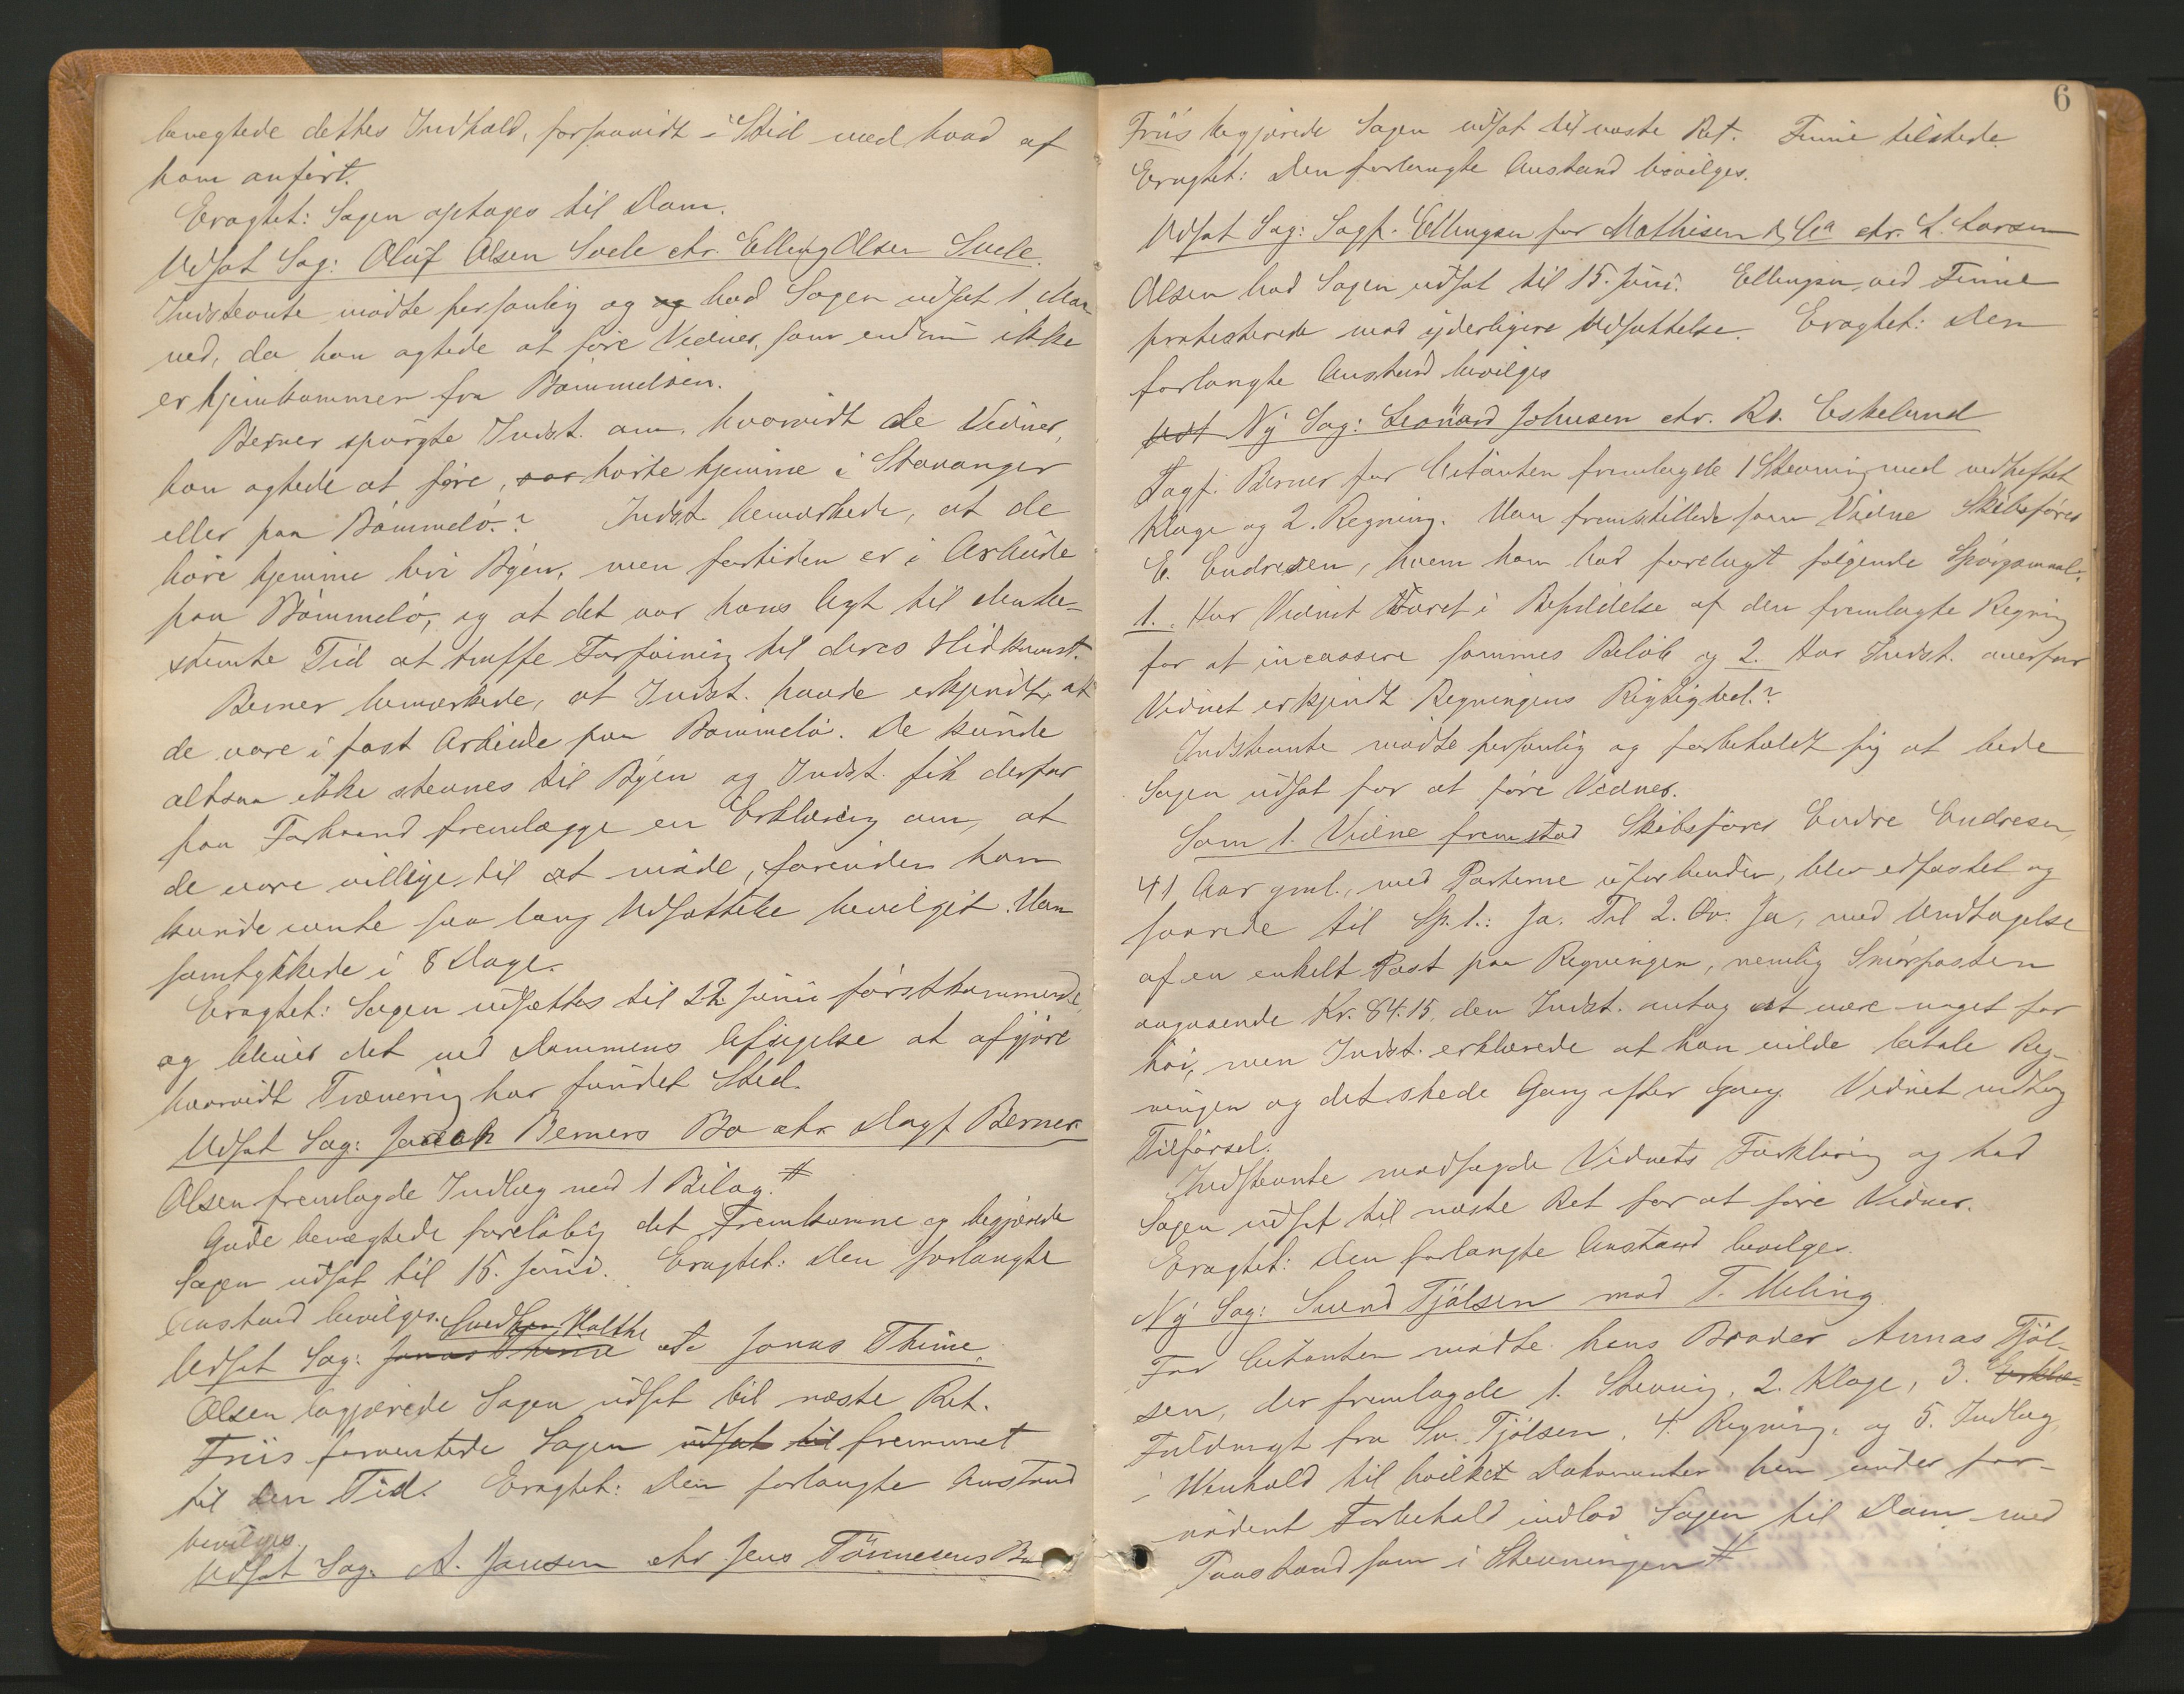 benegtede dettes Indhold, forsaavidt i Strid med hvad af
ham anført.
Eragtet: Sagen optages til Dom.
Udsat Sag: Oluf Olsen Svele ctr. Elling Olsen Svele.
Indstevnte mødte personlig og og bad Sagen udsat 1 Maa
ned, da han agtede at føre Vidner, som endnu ikke
er hjemkommen fra Bømmeløen.
Berner spurgte Indst. om, hvorvidt de Vidner,
han agtede at føre, var hørte hjemme i Stavanger
eller paa Bømmelø? Indst. bemærkede, at de
høre hjemme her i Byen, men for tiden er i Arbeide
paa Bømmelø, og at det var hans Agt til den be-
stemte Tid at træffe Forføining til deres Hidkomst.
Berner bemærkede, at Indst. havde erkjendt, at
de vare i fast Arbeide paa Bømmelø. De kunde
altsaa ikke stevnes til Byen og Indst. fik derfor
paa Forhaand fremlægge en Erklæring om, at
de vare villige til at møde, forinden han
kunde vente saa lang Udsættelse bevilget. Han
samtykkede i 8 Dage.
Eragtet: Sagen udsættes til 22 Juni førstkommende,
og bliver det ved Dommens Afsigelse at afgjøre
hvorvidt Trænering har fundet Sted.
Udsat Sag: Jacob Berners Bo ctr. Dagf. Berner
Olsen fremlagde Indlæg med 1 Bilag. #
Gude benægtede foreløbig det Fremkomne og begjærede
Sagen udsat til 15. Juni. Eragtet: Den forlangte
Anstand bevilges.
Udsat Sag: Jonas Thime Holthe ctr Jonas Thime.
Olsen begjærede Sagen udsat til næste Ret.
Friis forventede Sagen udsat til fremmet
til den Tid. Eragtet: Den forlangte Anstand
bevilges.
Udsat Sag. A. Jansen ctr Jens Tønnesens Bo
6
Friis begjærede Sagen udsat til næste Ret. Finne tilstede.
Eragtet: Den forlangte Anstand bevilges.
Udsat Sag: Sagf. Ellingsen for Mathisen & Co ctr. L. Larsen
Olsen bad Sagen udsat til 15. Juni. Ellingsen ved Finne
protesterede mod yderligere Udsættelse. Eragtet: Den
forlangte Anstand bevilges
Uds Ny Sag: Leonard Johnsen ctr. Rs. Eskelund
Sagf. Berner for Citanten fremlagde 1 Stevning med vedheftet
Klage og 2. Regning. Han fremstillede som Vidne Skibsfører
E. Endresen, hvem han bad forelagt følgende Spørgsmaal:
1. Har Vidnet været i Besiddelse af den fremlagte Regning
for at incassere sammes Beløb og 2. Har Indst. overfor
Vidnet erkjendt Regningens Rigtighed?
Indstevnte mødte personlig og forbeholdt sig at bede
Sagen udsat for at føre Vidner.
Som 1. Vidne fremstod Skibsfører Endre Endresen,
41 Aar gml., med Parterne uforbunden, blev edfæstet og
svarede til Sp. 1.: Ja. Til 2. Sv. Ja, med Undtagelse
af en enkelt Post paa Regningen, nemlig Smørposten
angaaende Kr. 84.15, den Indst. antog at være noget for
høi, men Indst. erklærede at han vilde betale Reg-
ningen og det skede Gang efter Gang. Vidnet vedtog
Tilførsel.
Indstevnte modsagde Vidnets Forklaring og bad
Sagen udsat til næste Ret for at føre Vidner.
Eragtet: Den forlangte Anstand bevilges.
Ny Sag: Svend Tjølsen mod T. Meling
For Citanten mødte hans Broder Annas Tjøl-
sen, der fremlagde 1. Stevning, 2. Klage, 3. Erklæ-
Fuldmagt fra Sv. Tjølsen, 4. Regning, og 5. Indlæg
i Henhold til hvilket Dokumenter han under for-
nødent Forbehold indlod Sagen til Dom med
Paastand som i Stevningen #